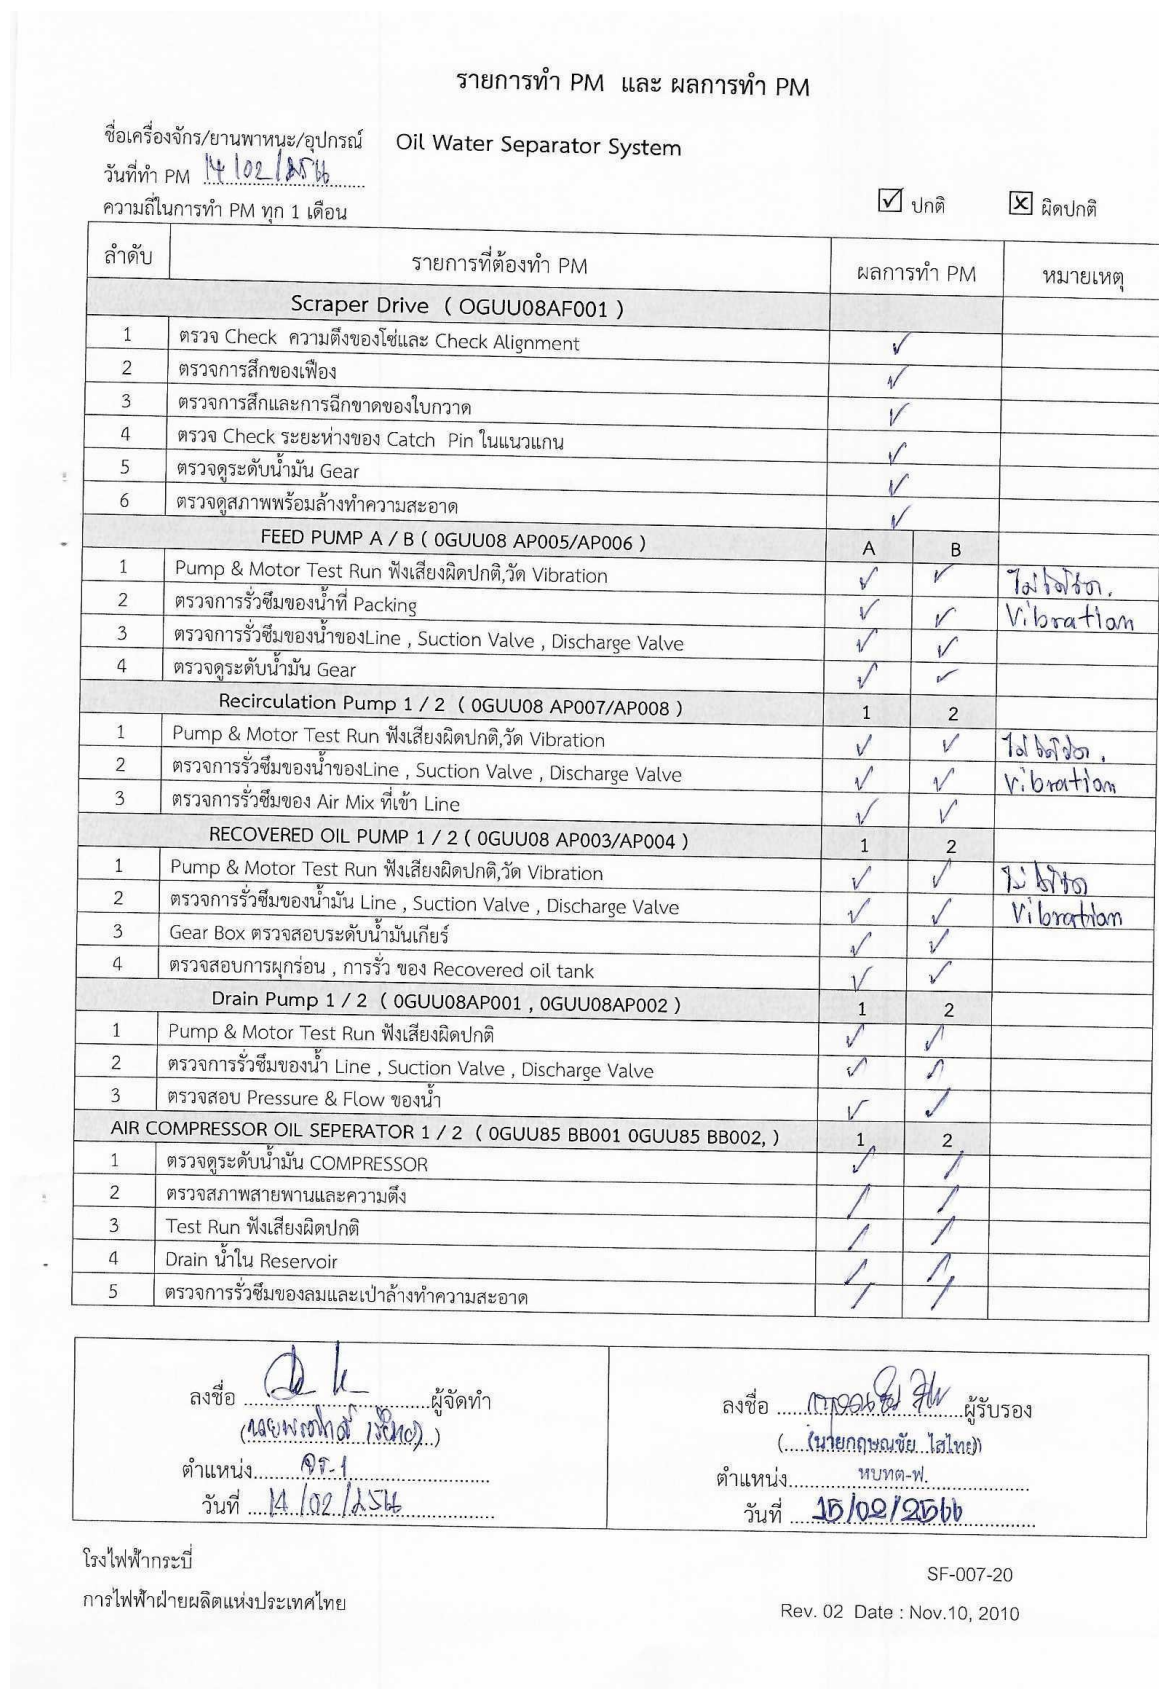 รายการทำ PM และ ผลการทำ PM
ชื่อเครื่องจักร/ยานพาหนะ/อุปกรณ์ Oil Water Separator System
วันที่ทำ PM 14/02/2566
ความถี่ในการทำ PM ทุก 1 เดือน ☑ ปกติ ☒ ผิดปกติ
ลำดับ รายการที่ต้องทำ PM ผลการทำ PM หมายเหตุ
Scraper Drive ( OGUU08AF001 )
1 ตรวจ Check ความตึงของโซ่และ Check Alignment ✓
2 ตรวจการสึกของเฟือง ✓
3 ตรวจการสึกและการฉีกขาดของใบกวาด ✓
4 ตรวจ Check ระยะห่างของ Catch Pin ในแนวแกน ✓
5 ตรวจดูระดับน้ำมัน Gear ✓
6 ตรวจดูสภาพพร้อมล้างทำความสะอาด ✓
FEED PUMP A / B ( 0GUU08 AP005/AP006 ) A B
1 Pump & Motor Test Run ฟังเสียงผิดปกติ,วัด Vibration ✓ ✓ ไม่ได้วัด.
2 ตรวจการรั่วซึมของน้ำที่ Packing ✓ ✓ Vibration
3 ตรวจการรั่วซึมของน้ำของLine , Suction Valve , Discharge Valve ✓ ✓
4 ตรวจดูระดับน้ำมัน Gear ✓ ✓
Recirculation Pump 1 / 2 ( 0GUU08 AP007/AP008 ) 1 2
1 Pump & Motor Test Run ฟังเสียงผิดปกติ,วัด Vibration ✓ ✓ ไม่ได้วัด.
2 ตรวจการรั่วซึมของน้ำของLine , Suction Valve , Discharge Valve ✓ ✓ Vibration
3 ตรวจการรั่วซึมของ Air Mix ที่เข้า Line ✓ ✓
RECOVERED OIL PUMP 1 / 2 ( 0GUU08 AP003/AP004 ) 1 2
1 Pump & Motor Test Run ฟังเสียงผิดปกติ,วัด Vibration ✓ ✓ ไม่ได้วัด
2 ตรวจการรั่วซึมของน้ำมัน Line , Suction Valve , Discharge Valve ✓ ✓ Vibration
3 Gear Box ตรวจสอบระดับน้ำมันเกียร์ ✓ ✓
4 ตรวจสอบการผุกร่อน , การรั่ว ของ Recovered oil tank ✓ ✓
Drain Pump 1 / 2 ( 0GUU08AP001 , 0GUU08AP002 ) 1 2
1 Pump & Motor Test Run ฟังเสียงผิดปกติ ✓ ✓
2 ตรวจการรั่วซึมของน้ำ Line , Suction Valve , Discharge Valve ✓ ✓
3 ตรวจสอบ Pressure & Flow ของน้ำ ✓ ✓
AIR COMPRESSOR OIL SEPERATOR 1 / 2 ( 0GUU85 BB001 0GUU85 BB002, ) 1 2
1 ตรวจดูระดับน้ำมัน COMPRESSOR ✓ /
2 ตรวจสภาพสายพานและความตึง / /
3 Test Run ฟังเสียงผิดปกติ / /
4 Drain น้ำใน Reservoir / /
5 ตรวจการรั่วซึมของลมและเป่าล้างทำความสะอาด / /
ลงชื่อ ผู้จัดทำ
ตำแหน่ง
วันที่ 14/02/2566
ลงชื่อ ผู้รับรอง
(นายกฤษณชัย ไสไทย)
ตำแหน่ง หบทต-ฟ.
วันที่ 15/02/2566
โรงไฟฟ้ากระบี่
การไฟฟ้าฝ่ายผลิตแห่งประเทศไทย
SF-007-20
Rev. 02 Date : Nov.10, 2010